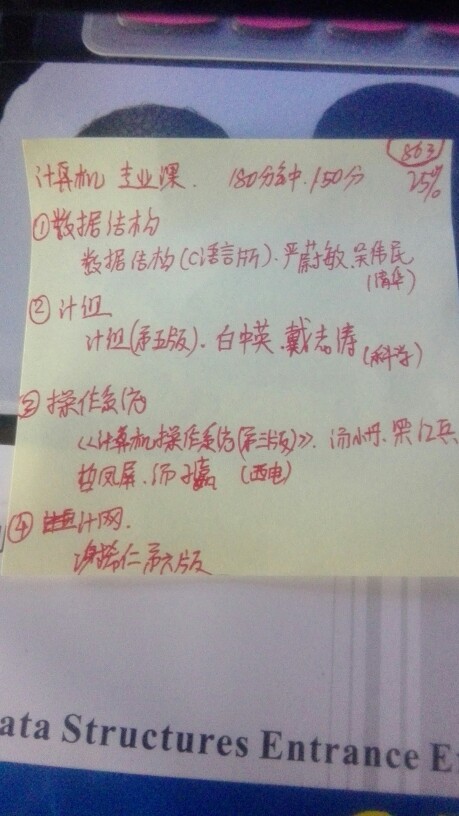 863
计算机 专业课. 180分钟. 150分 25%
①数据结构
数据结构(C语言版). 严蔚敏. 吴伟民
(清华)
② 计组
计组(第五版). 白中英. 戴志涛 (科学)
③ 操作系统
《计算机操作系统(第三版)》. 汤小丹. 梁红兵
哲凤屏. 汤子瀛 (西电)
④ 计网.
谢希仁 第六版
ata Structures Entrance E